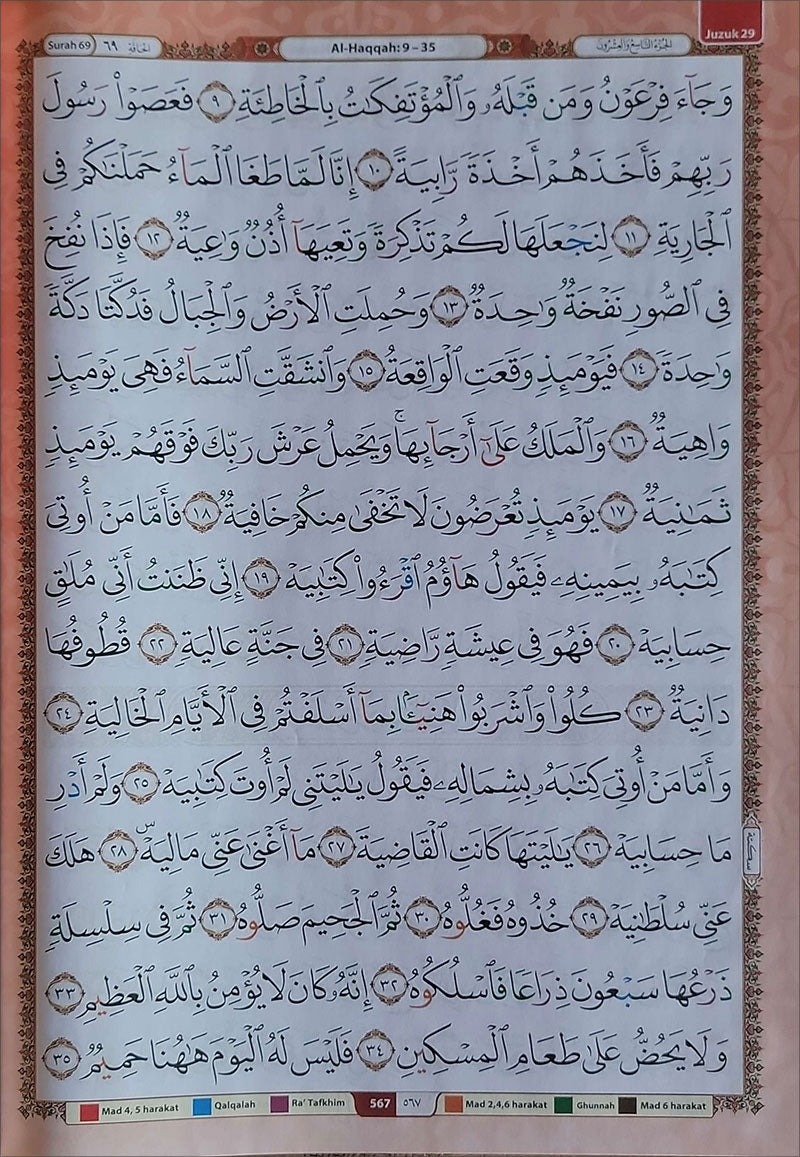 Surah 69 ٦٩ الحاقة
Al-Haqqah: 9 – 35
الجزء التاسع والعشرون
Juzuk 29
وَجَآءَ فِرْعَوْنُ وَمَن قَبْلَهُۥ وَٱلْمُؤْتَفِكَٰتُ بِٱلْخَاطِئَةِ ٩ فَعَصَوْا۟ رَسُولَ
رَبِّهِمْ فَأَخَذَهُمْ أَخْذَةً رَّابِيَةً ١٠ إِنَّا لَمَّا طَغَا ٱلْمَآءُ حَمَلْنَٰكُمْ فِى
ٱلْجَارِيَةِ ١١ لِنَجْعَلَهَا لَكُمْ تَذْكِرَةً وَتَعِيَهَآ أُذُنٌ وَٰعِيَةٌ ١٢ فَإِذَا نُفِخَ
فِى ٱلصُّورِ نَفْخَةٌ وَٰحِدَةٌ ١٣ وَحُمِلَتِ ٱلْأَرْضُ وَٱلْجِبَالُ فَدُكَّتَا دَكَّةً
وَٰحِدَةً ١٤ فَيَوْمَئِذٍ وَقَعَتِ ٱلْوَاقِعَةُ ١٥ وَٱنشَقَّتِ ٱلسَّمَآءُ فَهِىَ يَوْمَئِذٍ
وَاهِيَةٌ ١٦ وَٱلْمَلَكُ عَلَىٰٓ أَرْجَآئِهَا ۚ وَيَحْمِلُ عَرْشَ رَبِّكَ فَوْقَهُمْ يَوْمَئِذٍ
ثَمَٰنِيَةٌ ١٧ يَوْمَئِذٍ تُعْرَضُونَ لَا تَخْفَىٰ مِنكُمْ خَافِيَةٌ ١٨ فَأَمَّا مَنْ أُوتِىَ
كِتَٰبَهُۥ بِيَمِينِهِۦ فَيَقُولُ هَآؤُمُ ٱقْرَءُوا۟ كِتَٰبِيَهْ ١٩ إِنِّى ظَنَنتُ أَنِّى مُلَٰقٍ
حِسَابِيَهْ ٢٠ فَهُوَ فِى عِيشَةٍ رَّاضِيَةٍ ٢١ فِى جَنَّةٍ عَالِيَةٍ ٢٢ قُطُوفُهَا
دَانِيَةٌ ٢٣ كُلُوا۟ وَٱشْرَبُوا۟ هَنِيٓـًٔۢا بِمَآ أَسْلَفْتُمْ فِى ٱلْأَيَّامِ ٱلْخَالِيَةِ ٢٤
وَأَمَّا مَنْ أُوتِىَ كِتَٰبَهُۥ بِشِمَالِهِۦ فَيَقُولُ يَٰلَيْتَنِى لَمْ أُوتَ كِتَٰبِيَهْ ٢٥ وَلَمْ أَدْرِ
مَا حِسَابِيَهْ ٢٦ يَٰلَيْتَهَا كَانَتِ ٱلْقَاضِيَةَ ٢٧ مَآ أَغْنَىٰ عَنِّى مَالِيَهْ ۜ ٢٨ هَلَكَ
سكتة
عَنِّى سُلْطَٰنِيَهْ ٢٩ خُذُوهُ فَغُلُّوهُ ٣٠ ثُمَّ ٱلْجَحِيمَ صَلُّوهُ ٣١ ثُمَّ فِى سِلْسِلَةٍ
ذَرْعُهَا سَبْعُونَ ذِرَاعًا فَٱسْلُكُوهُ ٣٢ إِنَّهُۥ كَانَ لَا يُؤْمِنُ بِٱللَّهِ ٱلْعَظِيمِ ٣٣
وَلَا يَحُضُّ عَلَىٰ طَعَامِ ٱلْمِسْكِينِ ٣٤ فَلَيْسَ لَهُ ٱلْيَوْمَ هَٰهُنَا حَمِيمٌ ٣٥
Mad 4, 5 harakat Qalqalah Ra' Tafkhim 567 ٥٦٧ Mad 2,4,6 harakat Ghunnah Mad 6 harakat